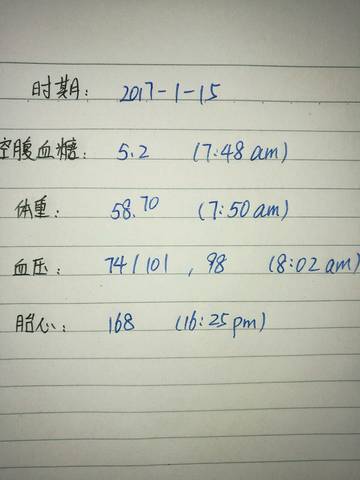 时期: 2017-1-15
空腹血糖: 5.2 (7:48 am)
体重: 58.70 (7:50 am)
血压: 74/101, 98 (8:02 am)
胎心: 168 (16:25 pm)